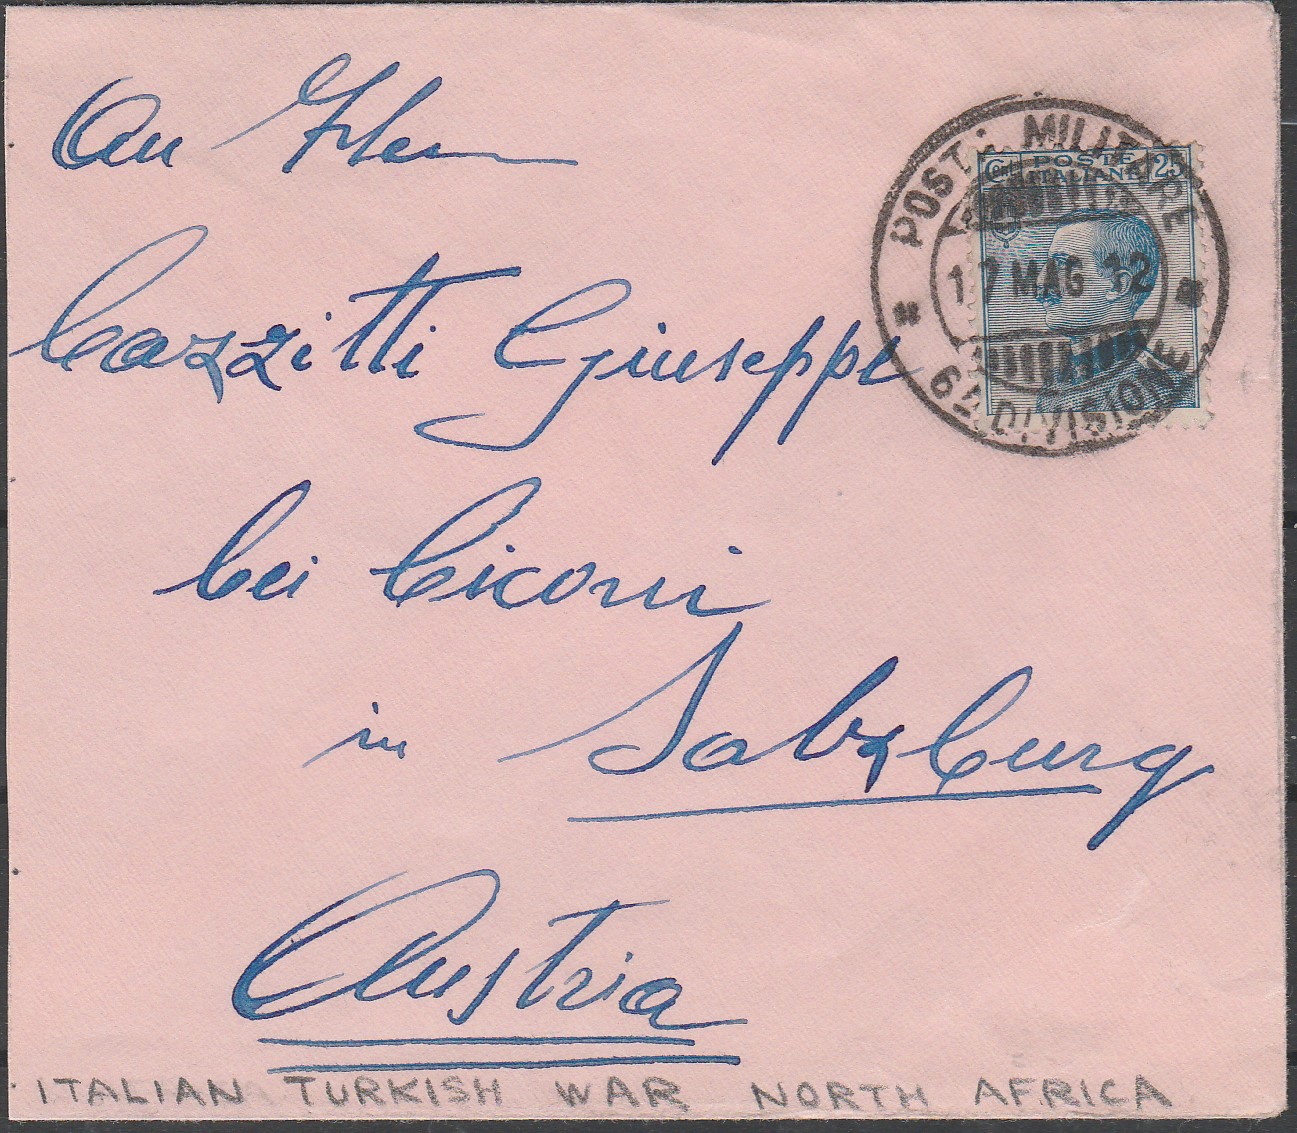 An Herrn
Cazzitti Giuseppe
bei Ciconi
in Salzburg
Austria
POSTA MILITARE
17 MAG 12
6ª DIVISIONE
POSTE
ITALIANE
25
ITALIAN TURKISH WAR NORTH AFRICA